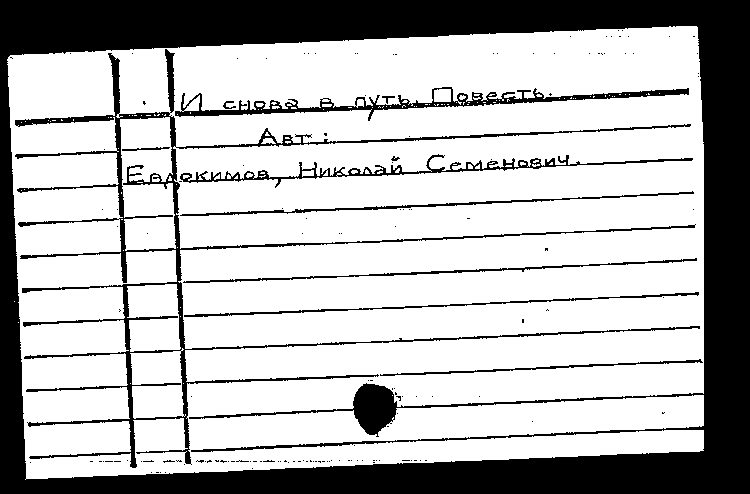 И снова в путь. Повесть.
Авт.:
Евдокимов, Николай Семенович.